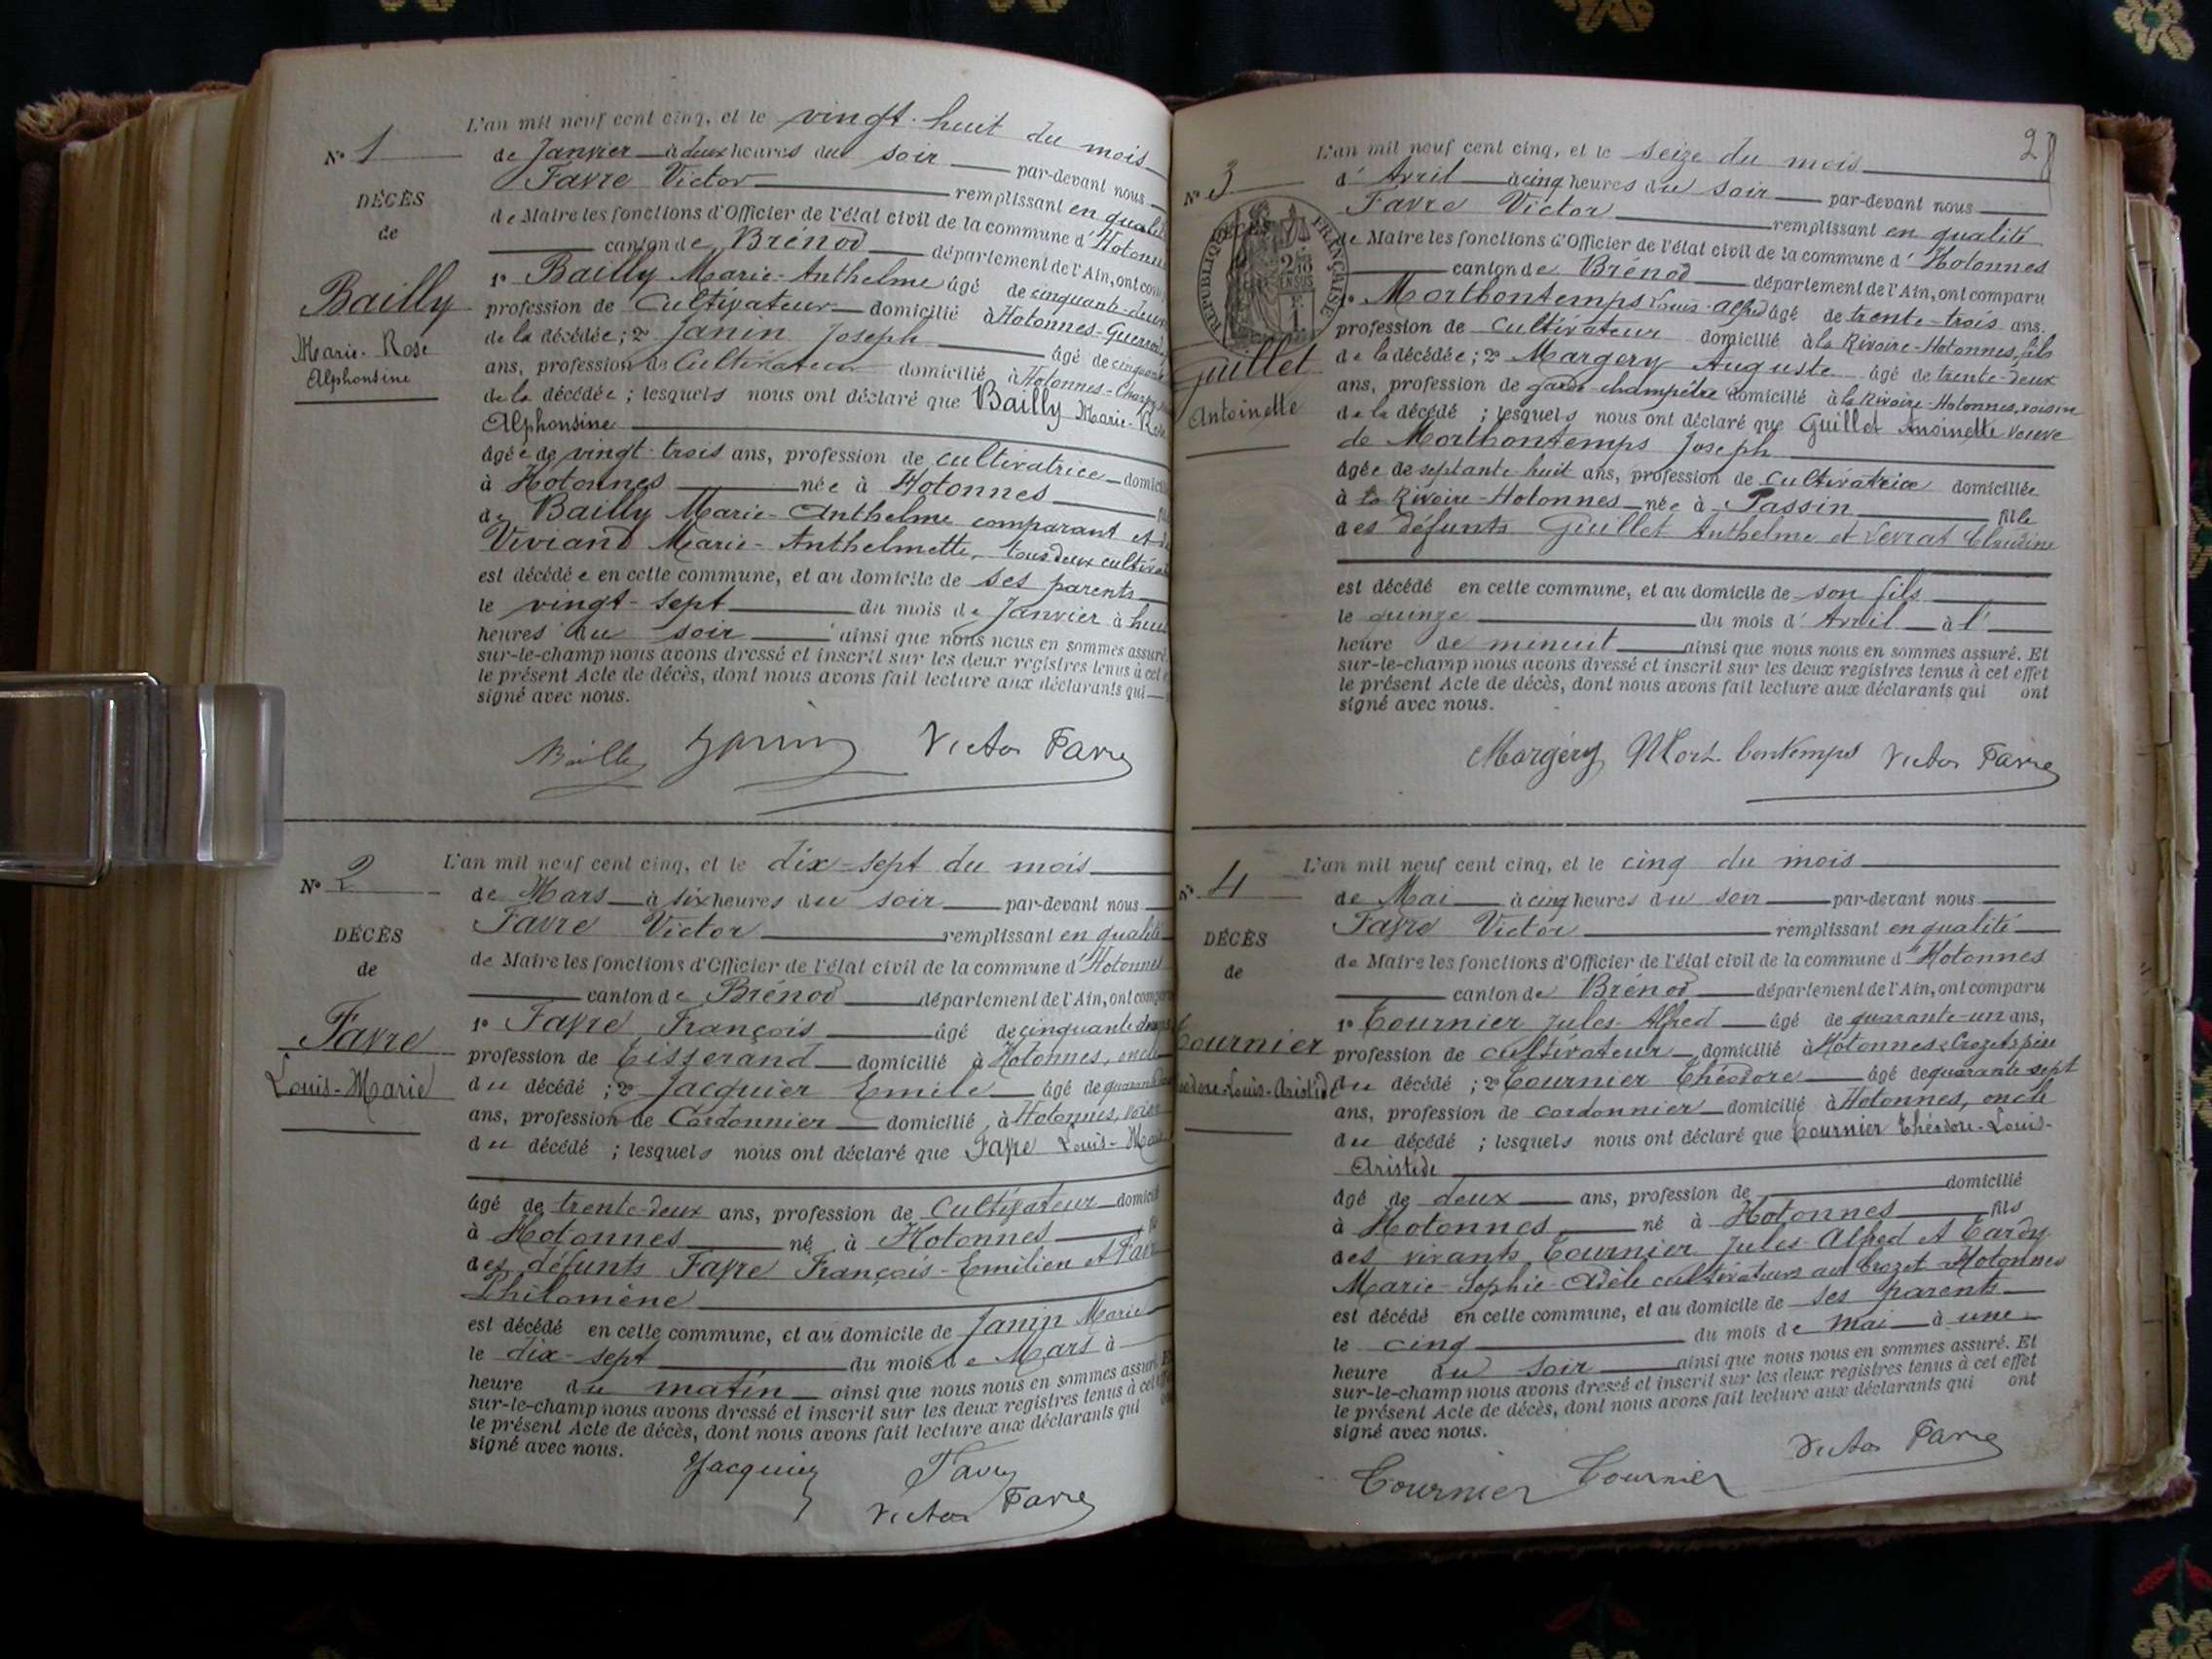 N° 1
DÉCÈS
de
Bailly
Marie-Rose
Alphonsine
L'an mil neuf cent cinq, et le vingt-huit du mois
de Janvier à deux heures du soir par-devant nous
Favre Victor remplissant en qualité
de Maire les fonctions d'Officier de l'état civil de la commune d'Hotonnes
canton de Brénod département de l'Ain, ont comp
1° Bailly Marie-Anthelme âgé de cinquante-deux
profession de Cultivateur domicilié à Hotonnes
de la décédée ; 2° Janin Joseph âgé de cinquante
ans, profession de Cultivateur domicilié à Hotonnes
de la décédée ; lesquels nous ont déclaré que Bailly Marie-Rose
Alphonsine
âgée de vingt-trois ans, profession de cultivatrice domicil
à Hotonnes née à Hotonnes
de Bailly Marie-Anthelme comparant et de
Viviand Marie-Anthelmette, tous deux cultiva
est décédée en cette commune, et au domicile de ses parents
le vingt-sept du mois de Janvier à huit
heures du soir ainsi que nous nous en sommes assuré.
sur-le-champ nous avons dressé et inscrit sur les deux registres tenus à cet e
le présent Acte de décès, dont nous avons fait lecture aux déclarants qui
signé avec nous.
Bailly Janin Victor Favre
N° 2
DÉCÈS
de
Favre
Louis-Marie
L'an mil neuf cent cinq, et le dix-sept du mois
de Mars à six heures du soir par-devant nous
Favre Victor remplissant en qualité
de Maire les fonctions d'Officier de l'état civil de la commune d'Hotonnes
canton de Brénod département de l'Ain, ont compa
1° Favre François âgé de cinquante
profession de Tisserand domicilié à Hotonnes, oncle
du décédé ; 2° Jacquier Emile âgé de quarante
ans, profession de Cordonnier domicilié à Hotonnes, voisin
du décédé ; lesquels nous ont déclaré que Favre Louis-Marie
âgé de trente-deux ans, profession de Cultivateur domicil
à Hotonnes né à Hotonnes
des défunts Favre François-Emilien et Favre
Philomène
est décédé en cette commune, et au domicile de Janin Marie
le dix-sept du mois de Mars à
heure du matin ainsi que nous nous en sommes assuré. E
sur-le-champ nous avons dressé et inscrit sur les deux registres tenus à cet eff
le présent Acte de décès, dont nous avons fait lecture aux déclarants qui
signé avec nous.
Jacquier Favre
Victor Favre
28
N° 3
DÉCÈS
RÉPUBLIQUE FRANÇAISE
Guillet
Antoinette
L'an mil neuf cent cinq, et le seize du mois
d'Avril à cinq heures du soir par-devant nous
Favre Victor remplissant en qualité
de Maire les fonctions d'Officier de l'état civil de la commune d'Hotonnes
canton de Brénod département de l'Ain, ont comparu
1° Mortbontemps Louis-Alfred âgé de trente-trois ans.
profession de Cultivateur domicilié à la Rivoire-Hotonnes, fils
de la décédée ; 2° Margery Auguste âgé de trente-deux
ans, profession de garde-champêtre domicilié à la Rivoire-Hotonnes, voisin
de la décédé ; lesquels nous ont déclaré que Guillet Antoinette veuve
de Mortbontemps Joseph
âgée de septante-huit ans, profession de cultivatrice domiciliée
à la Rivoire-Hotonnes née à Passin fille
des défunts Guillet Anthelme et Levrat Claudine
est décédé en cette commune, et au domicile de son fils
le quinze du mois d'Avril à l'
heure de minuit ainsi que nous nous en sommes assuré. Et
sur-le-champ nous avons dressé et inscrit sur les deux registres tenus à cet effet
le présent Acte de décès, dont nous avons fait lecture aux déclarants qui ont
signé avec nous.
Margéry Mort-bontemps Victor Favre
N° 4
DÉCÈS
de
Tournier
éodore-Louis-Aristide
L'an mil neuf cent cinq, et le cinq du mois
de Mai à cinq heures du soir par-devant nous
Favre Victor remplissant en qualité
de Maire les fonctions d'Officier de l'état civil de la commune d'Hotonnes
canton de Brénod département de l'Ain, ont comparu
1° Tournier Jules-Alfred âgé de quarante-un ans,
profession de cultivateur domicilié à Hotonnes-Crozet, père
du décédé ; 2° Tournier Théodore âgé de quarante-sept
ans, profession de cordonnier domicilié à Hotonnes, oncle
du décédé ; lesquels nous ont déclaré que Tournier Théodore-Louis-
Aristide
âgé de deux ans, profession de domicilié
à Hotonnes né à Hotonnes fils
des vivants Tournier Jules-Alfred et Tardy
Marie-Sophie-Adèle cultivateurs au Crozet-Hotonnes
est décédé en cette commune, et au domicile de ses parents
le cinq du mois de Mai à une
heure du soir ainsi que nous nous en sommes assuré. Et
sur-le-champ nous avons dressé et inscrit sur les deux registres tenus à cet effet
le présent Acte de décès, dont nous avons fait lecture aux déclarants qui ont
signé avec nous.
Tournier Tournier Victor Favre